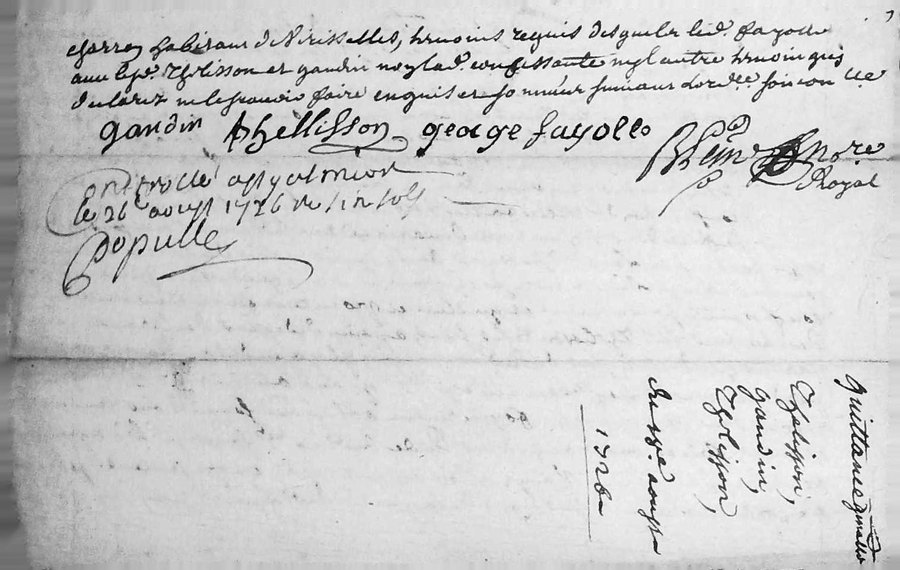 charron habitant de Virisselles, temoins requis desquels led. fayolle
avec lesd. Thelisson et gaudin non lad. confessante ny l'autre temoin qui
declarez ne le scavoir faire enquis et sommeur suivant lord.ce soit con lle
gaudin Thellisson george fayolle
no.re
Royal
Controllé a st galmier
le 26e aoust 1726 six sols
populle
quittance g.nalle
Thelisson,
gaudin,
Tholisson,
du 22e. aoust
1726